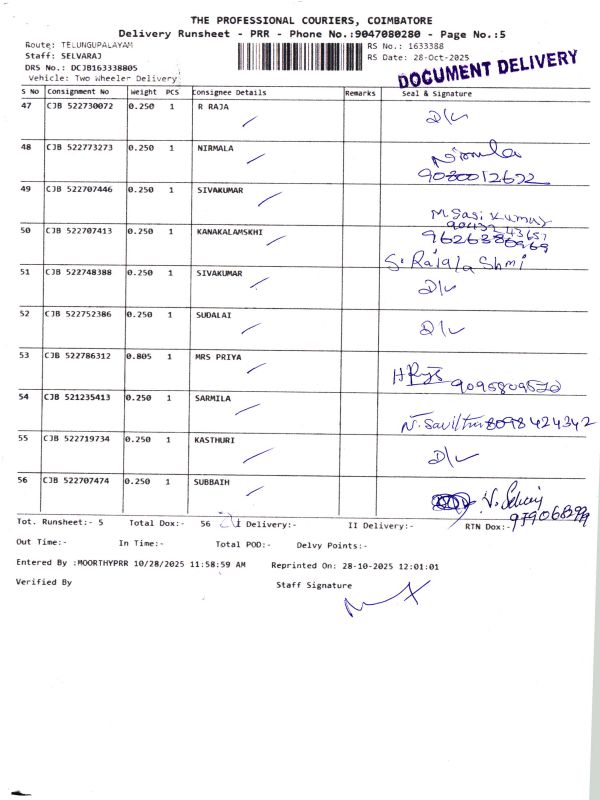 THE PROFESSIONAL COURIERS, COIMBATORE
Delivery Runsheet - PRR - Phone No.:9047080280 - Page No.:5
Route: TELUNGUPALAYAM RS No.: 1633388
Staff: SELVARAJ RS Date: 28-Oct-2025
DRS No.: DCJB163338805
Vehicle: Two Wheeler Delivery
DOCUMENT DELIVERY
S No Consignment No Weight PCS Consignee Details Remarks Seal & Signature
47 CJB 522730072 0.250 1 R RAJA D/L
48 CJB 522773273 0.250 1 NIRMALA Nirmala
9080012622
49 CJB 522707446 0.250 1 SIVAKUMAR M. Sasi Kumar
50 CJB 522707413 0.250 1 KANAKALAMSKHI
S. Rajala Shmi
51 CJB 522748388 0.250 1 SIVAKUMAR D/L
52 CJB 522752386 0.250 1 SUDALAI D/L
53 CJB 522786312 0.805 1 MRS PRIYA
9095809570
54 CJB 521235413 0.250 1 SARMILA
8098424342
55 CJB 522719734 0.250 1 KASTHURI D/L
56 CJB 522707474 0.250 1 SUBBAIH
Tot. Runsheet:- 5 Total Dox:- 56 I Delivery:- II Delivery:- RTN Dox:-
Out Time:- In Time:- Total POD:- Delvy Points:-
Entered By :MOORTHYPRR 10/28/2025 11:58:59 AM Reprinted On: 28-10-2025 12:01:01
Verified By Staff Signature